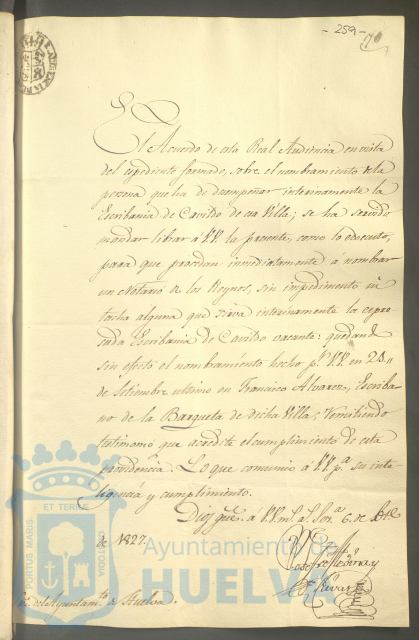 - 259 -
El Acuerdo de esta Real Audiencia en vista
del espediente formado, sobre el nombramiento de la
persona que ha de desempeñar interinamente la
Escribania de Cavildo de esa Villa; se ha servido
mandar librar á VV. la presente, como lo ejecuto,
para que procedan inmediatamente a nombrar
un Notario de los Reynos, sin impedimento ni
tacha alguna que sirva interinamente la espre-
sada Escribania de Cavildo vacante: quedando
sin efecto el nombramiento hecho pr. VV. en 20
de Setiembre ultimo en Francisco Alvarez, Escriba-
no de la Barqueta de dicha Villa; remitiendo
testimonio que acredite el cumplimiento de esta
providencia. Lo que comunico á VV. pa. su inte-
ligencia y cumplimiento.
Dios gue. á VV. ms. as. Sevª 6 de
de 1827.
del Ayuntamto. de Huelva.
PORTUS MARIS
ET TERRE
CUSTODIA
Ayuntamiento de
HUELVA